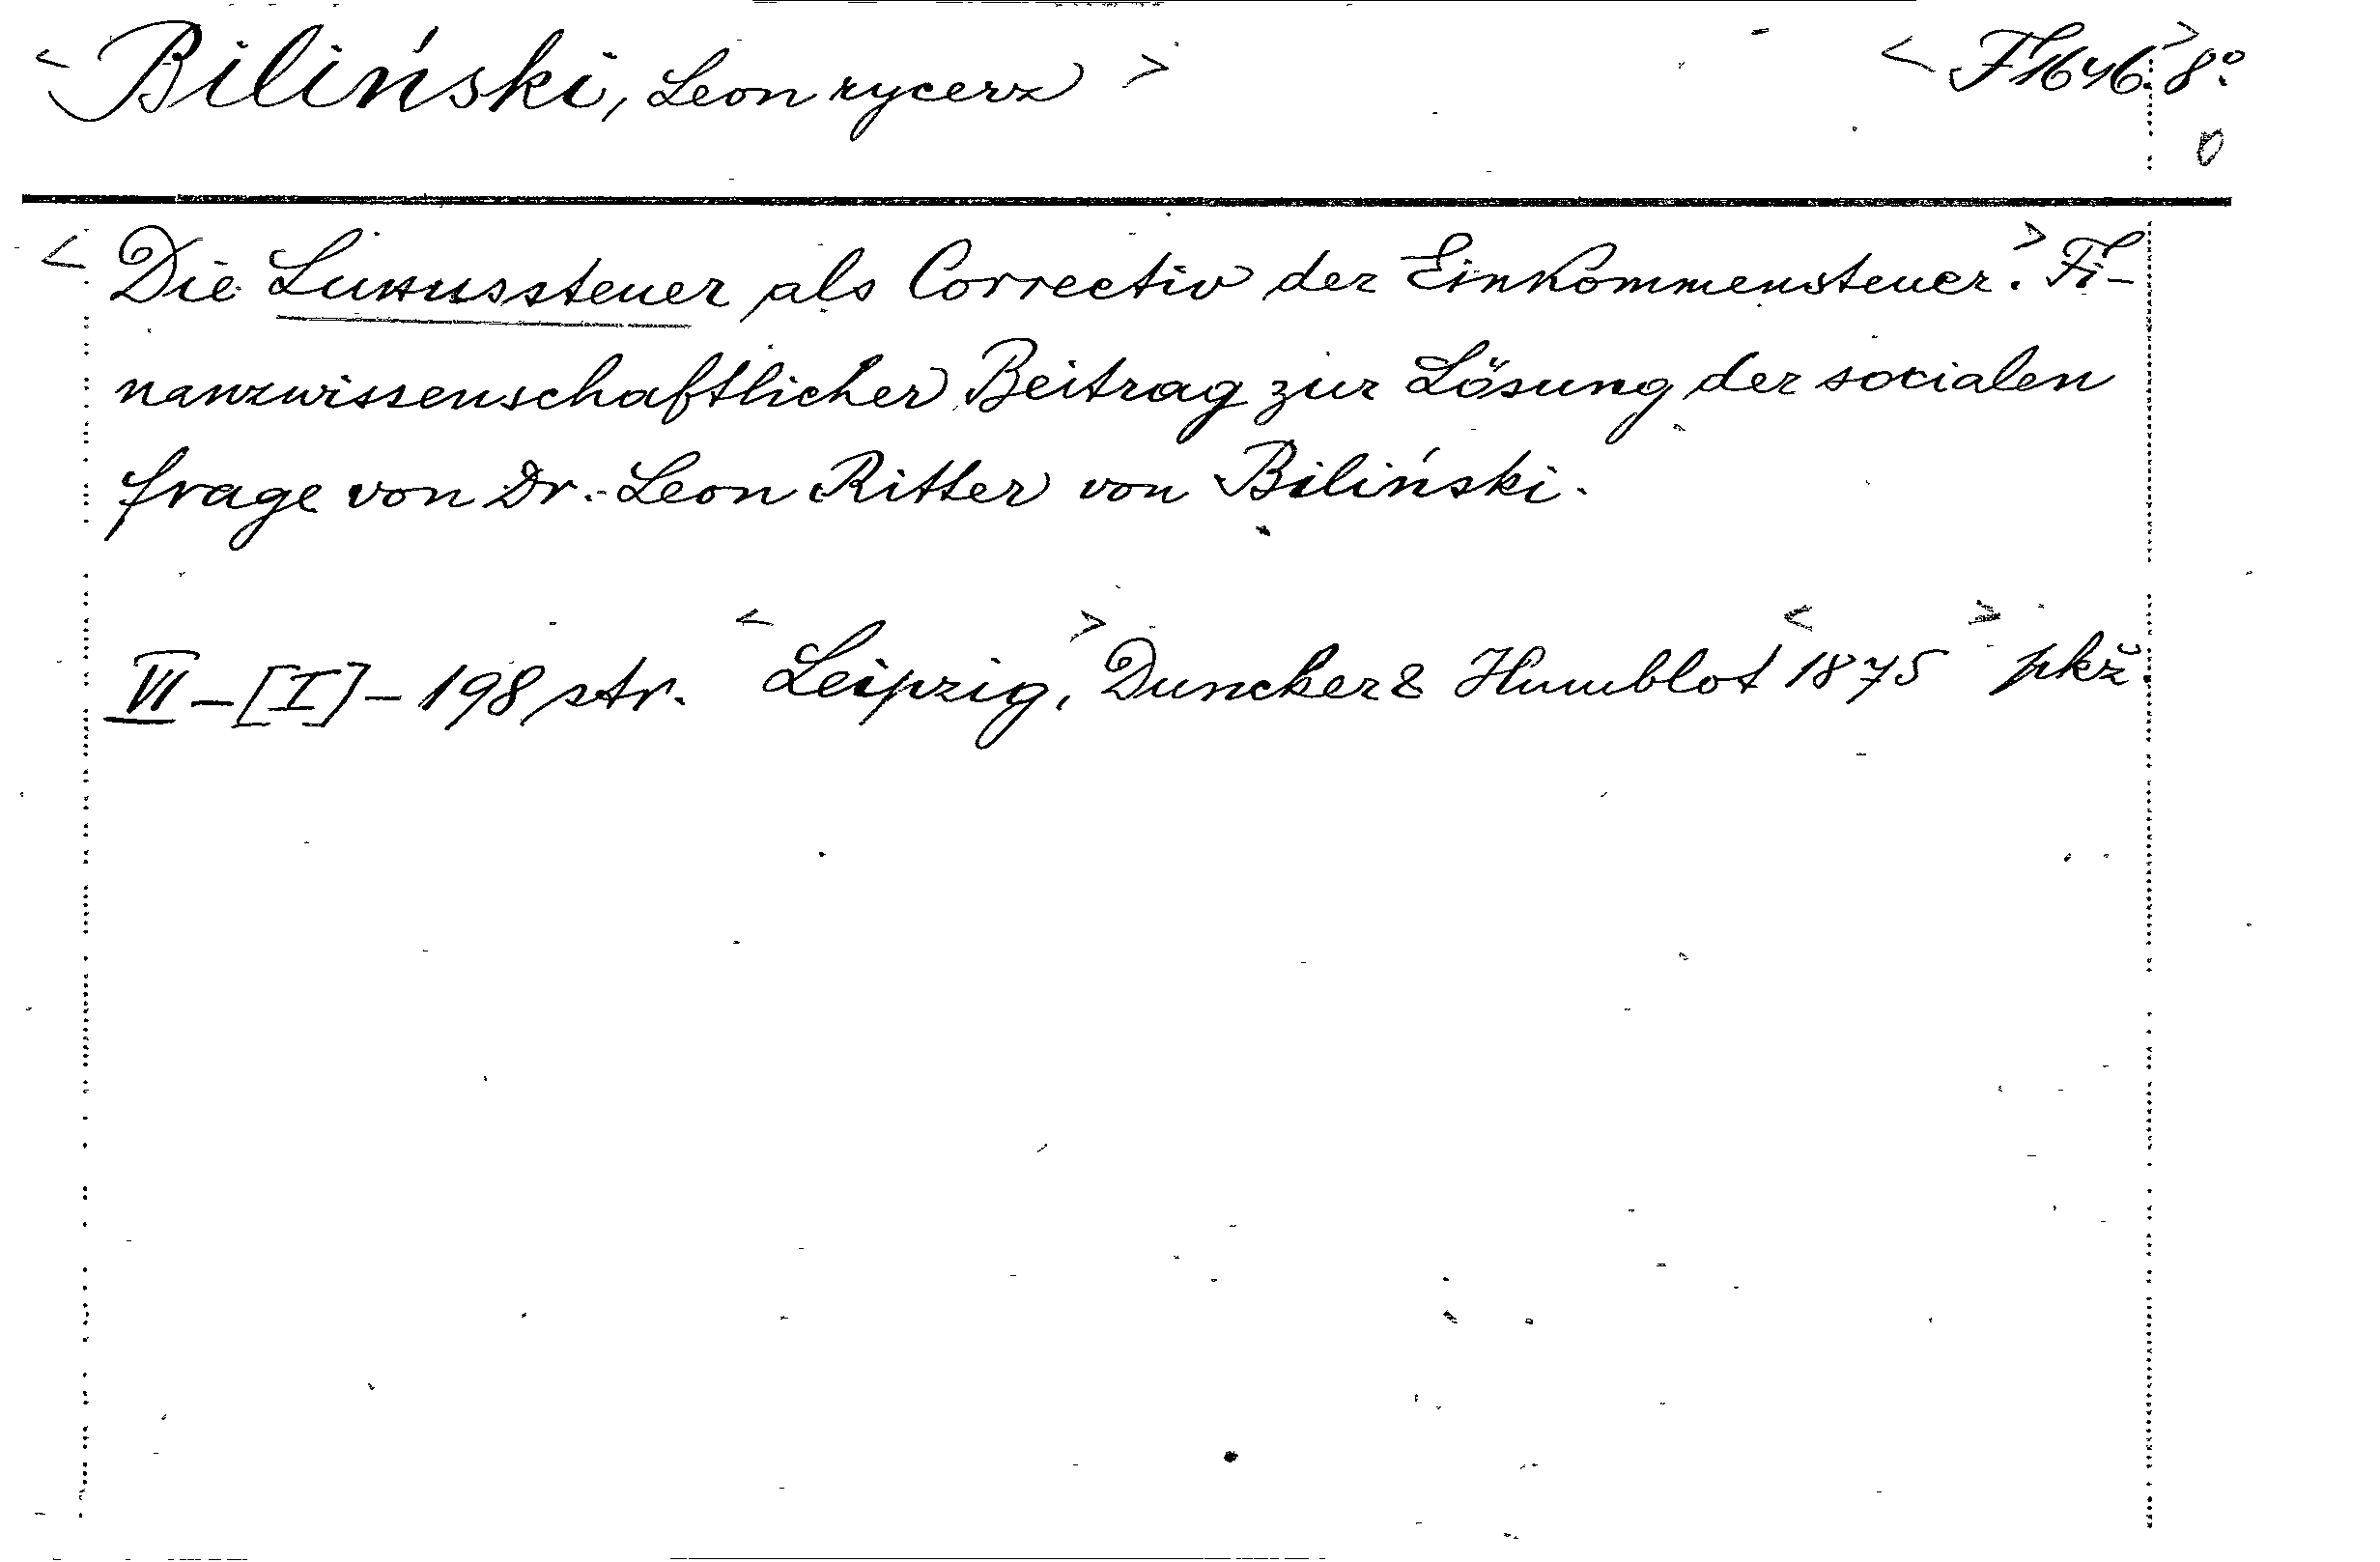 < Biliński, Leon rycerz > < F 1646. > 8°.
0
< Die Luxussteuer als Correctiv der Einkommensteuer. > Fi-
nanzwissenschaftlicher Beitrag zur Lösung der socialen
frage von Dr. Leon Ritter von Biliński.
VI – [I] – 198 str. < Leipzig, > Duncker & Humblot < 1875 > pkž.